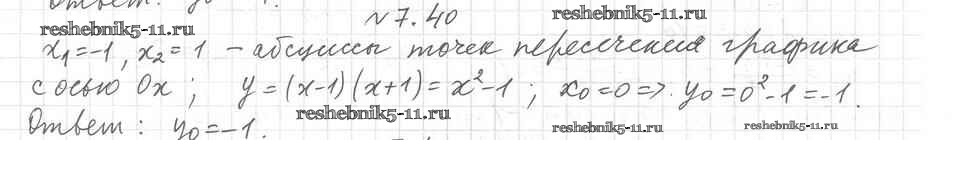 №7.40
reshebnik5-11.ru
reshebnik5-11.ru
x₁=-1, x₂=1 – абсциссы точек пересечения графика
с осью Ox; y=(x-1)(x+1)=x²-1; x₀=0 => y₀=0²-1=-1.
reshebnik5-11.ru
Ответ: y₀=-1.
reshebnik5-11.ru
reshebnik5-11.ru